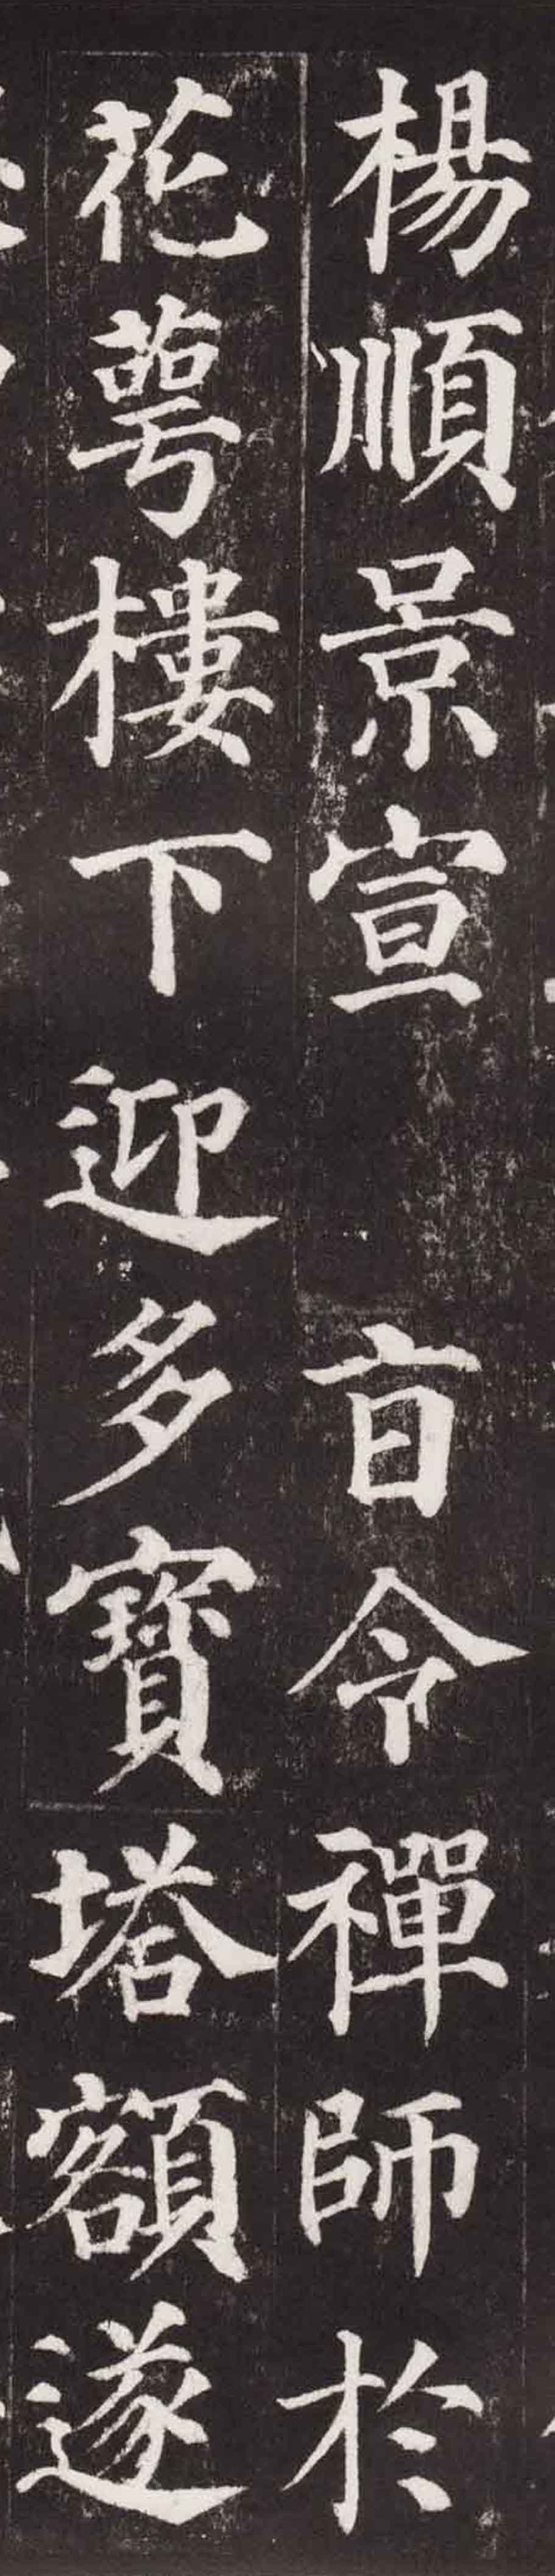 楊順景宣　㫖令禪師於
花萼樓下迎多寶塔額遂